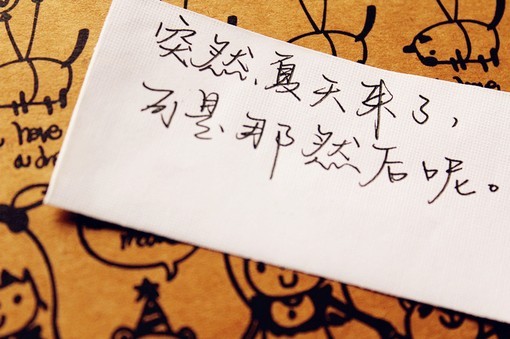 突然,夏天来了,
可是那然后呢。
have
a dre